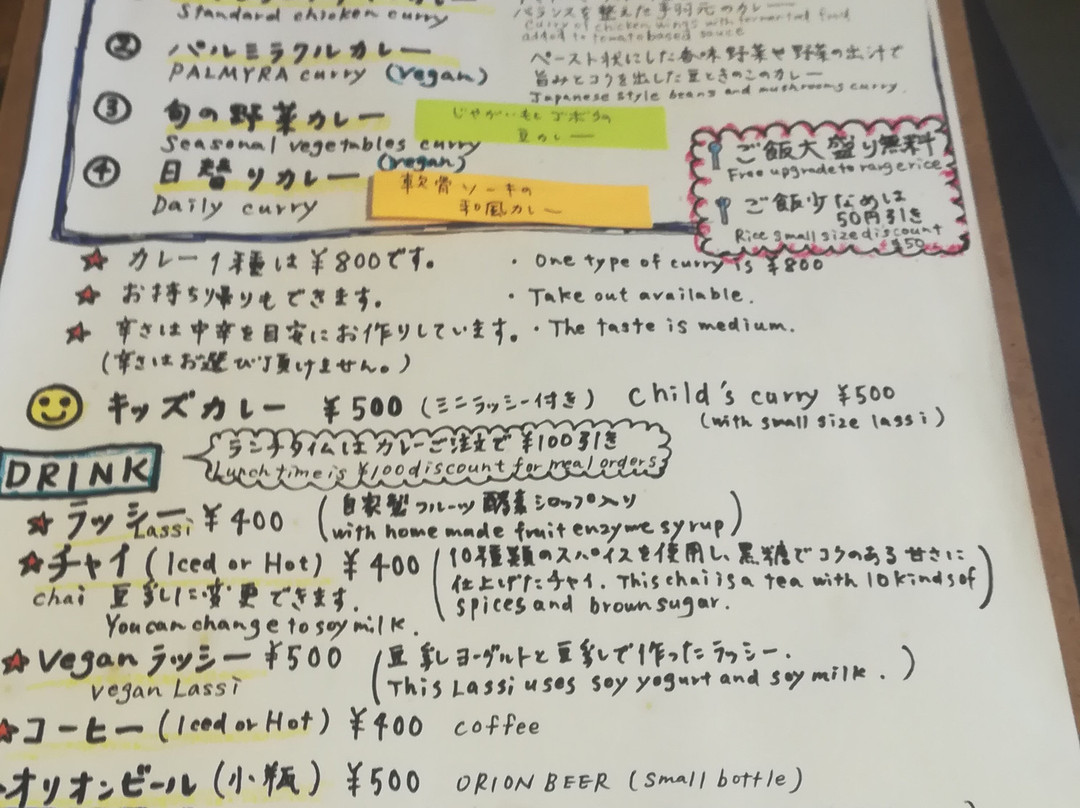 Standard chicken curry
バランスを整えた手羽元のカレー
curry of chicken wings with fermented food
added to tomato based sauce
② パルミラクルカレー
PALMYRA curry (vegan)
ペースト状にした香味野菜や野菜の出汁で
旨みとコクを出した豆ときのこのカレー
Japanese style beans and mushrooms curry.
③ 旬の野菜カレー
Seasonal vegetables curry
(vegan)
じゃがいもとゴボウの
豆カレー
④ 日替りカレー
Daily curry
軟骨ソーキの
和風カレー
ご飯大盛り無料
Free upgrade to rarge rice
ご飯少なめは
50円引き
Rice small size discount
¥50
★ カレー1種は¥800です。
・One type of curry is ¥800
★ お持ち帰りもできます。
・Take out available.
★ 辛さは中辛を目安にお作りしています。
・The taste is medium.
(辛さはお選び頂けません。)
キッズカレー ¥500 (ミニラッシー付き) child's curry ¥500
(with small size lassi)
DRINK
ランチタイムはカレーご注文で¥100引き
Lunch time is ¥100 discount for meal orders
★ ラッシー Lassi ¥400
(自家製フルーツ酵素シロップ入り
with home made fruit enzyme syrup)
★チャイ (Iced or Hot) ¥400
(10種類のスパイスを使用し、黒糖でコクのある甘さに
仕上げたチャイ. This chai is a tea with 10 kinds of
spices and brown sugar.)
chai 豆乳に変更できます.
You can change to soy milk.
★ Vegan ラッシー ¥500
Vegan Lassi
(豆乳ヨーグルトと豆乳で作ったラッシー.
This Lassi uses soy yogurt and soy milk.)
★コーヒー (Iced or Hot) ¥400 coffee
オリオンビール (小瓶) ¥500 ORION BEER (small bottle)